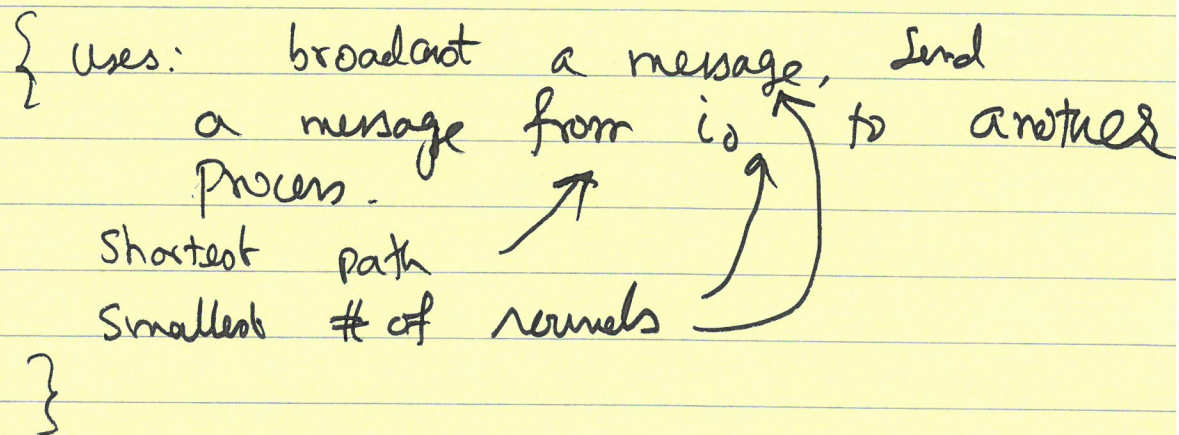 { Uses: broadcast a message, send
a message from i₀ to another
process.
Shortest path
Smallest # of rounds
}